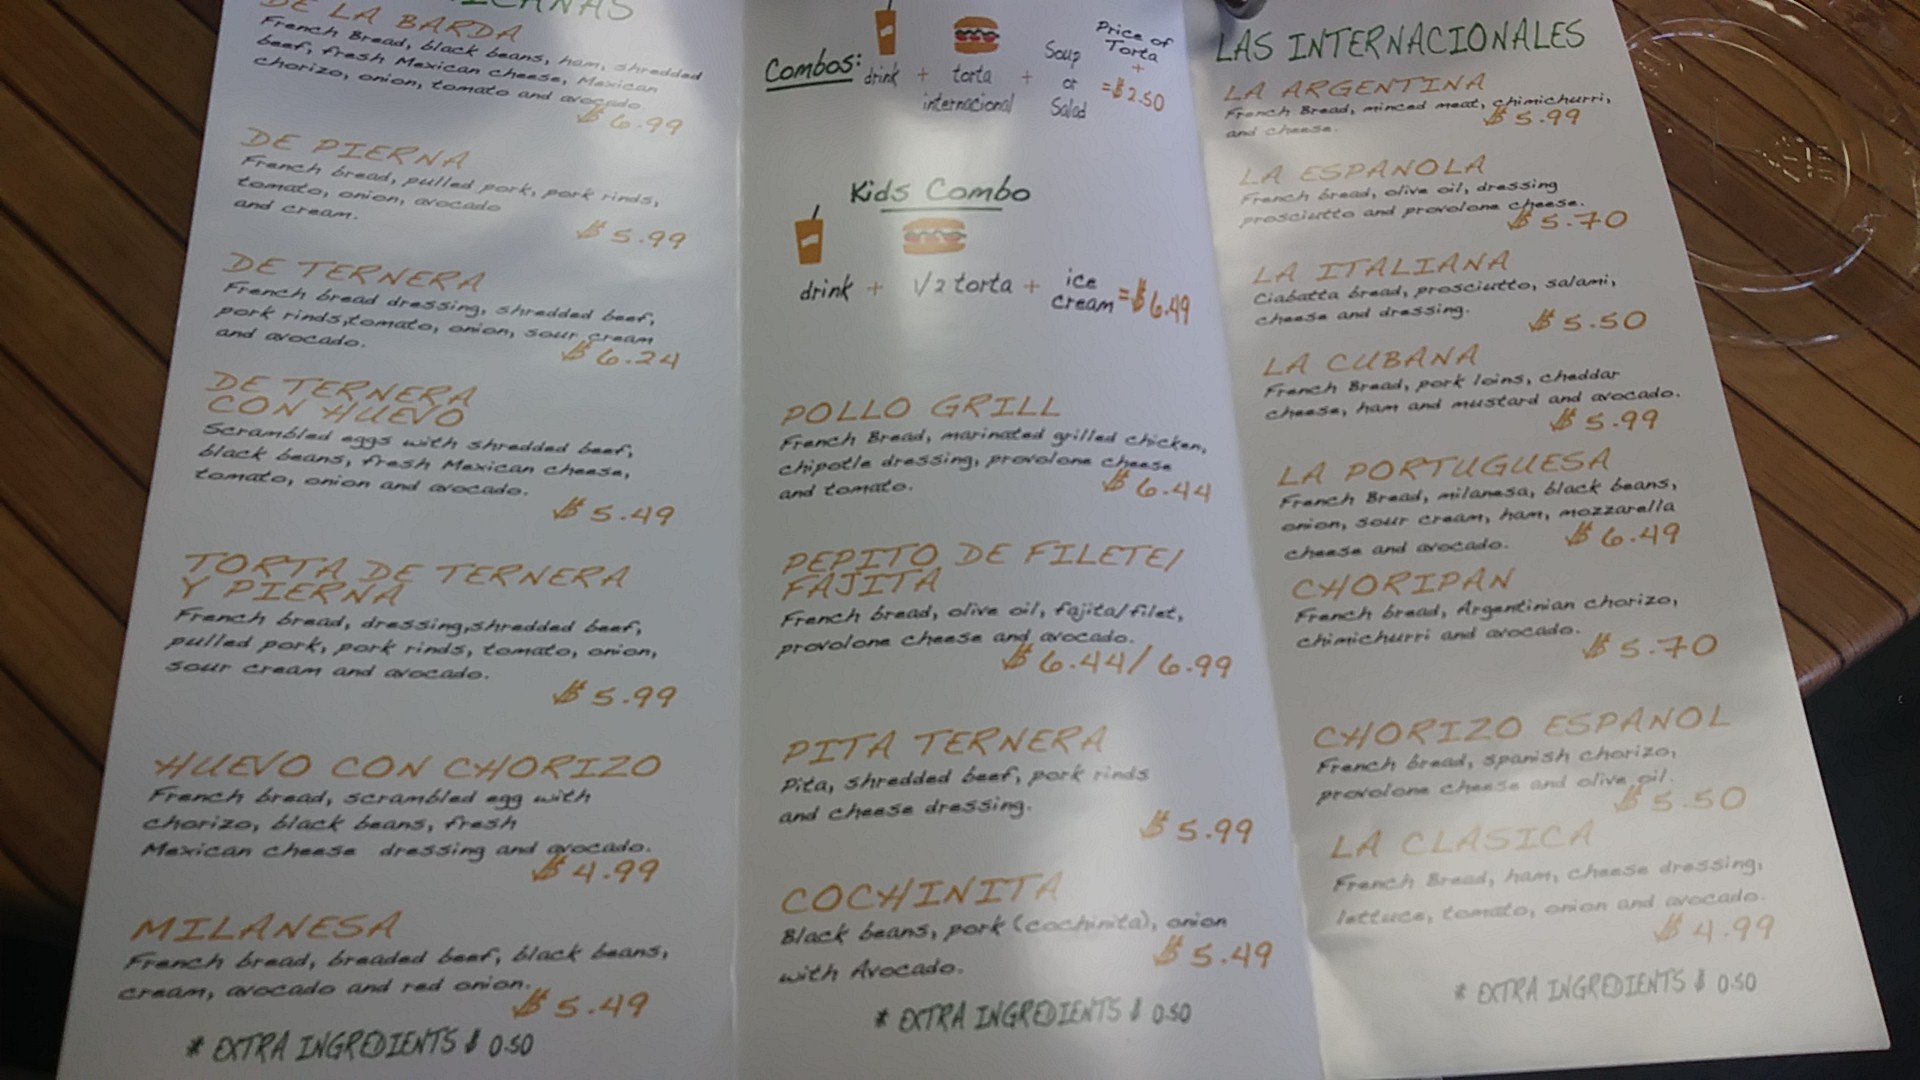 DE LA BARDA
French Bread, black beans, ham, shredded
beef, fresh Mexican cheese, Mexican
chorizo, onion, tomato and avocado.
$ 6.99
DE PIERNA
French bread, pulled pork, pork rinds,
tomato, onion, avocado
and cream.
$ 5.99
DE TERNERA
French bread dressing, shredded beef,
pork rinds,tomato, onion, sour cream
and avocado.
$ 6.24
DE TERNERA
CON HUEVO
Scrambled eggs with shredded beef,
black beans, fresh Mexican cheese,
tomato, onion and avocado.
$ 5.49
TORTA DE TERNERA
Y PIERNA
French bread, dressing,shredded beef,
pulled pork, pork rinds, tomato, onion,
sour cream and avocado.
$ 5.99
HUEVO CON CHORIZO
French bread, scrambled egg with
chorizo, black beans, fresh
Mexican cheese dressing and avocado.
$ 4.99
MILANESA
French bread, breaded beef, black beans,
cream, avocado and red onion.
$ 5.49
* EXTRA INGREDIENTS $ 0.50
Combos: drink + torta internacional + Soup or Salad = Price of Torta + $2.50
Kids Combo
drink + 1/2 torta + ice cream = $6.49
POLLO GRILL
French Bread, marinated grilled chicken,
chipotle dressing, provolone cheese
and tomato.
$ 6.44
PEPITO DE FILETE/
FAJITA
French bread, olive oil, fajita/filet,
provolone cheese and avocado.
$ 6.44/ 6.99
PITA TERNERA
Pita, shredded beef, pork rinds
and cheese dressing.
$ 5.99
COCHINITA
Black beans, pork (cochinita), onion
with Avocado.
$ 5.49
* EXTRA INGREDIENTS $ 0.50
LAS INTERNACIONALES
LA ARGENTINA
French Bread, minced meat, chimichurri,
and cheese.
$ 5.99
LA ESPANOLA
French bread, olive oil, dressing
prosciutto and provolone cheese.
$ 5.70
LA ITALIANA
Ciabatta bread, prosciutto, salami,
cheese and dressing.
$ 5.50
LA CUBANA
French Bread, pork loins, cheddar
cheese, ham and mustard and avocado.
$ 5.99
LA PORTUGUESA
French Bread, milanesa, black beans,
onion, sour cream, ham, mozzarella
cheese and avocado.
$ 6.49
CHORIPAN
French bread, Argentinian chorizo,
chimichurri and avocado.
$ 5.70
CHORIZO ESPANOL
French bread, spanish chorizo,
provolone cheese and olive oil.
$ 5.50
LA CLASICA
French Bread, ham, cheese dressing,
lettuce, tomato, onion and avocado.
$ 4.99
* EXTRA INGREDIENTS $ 0.50